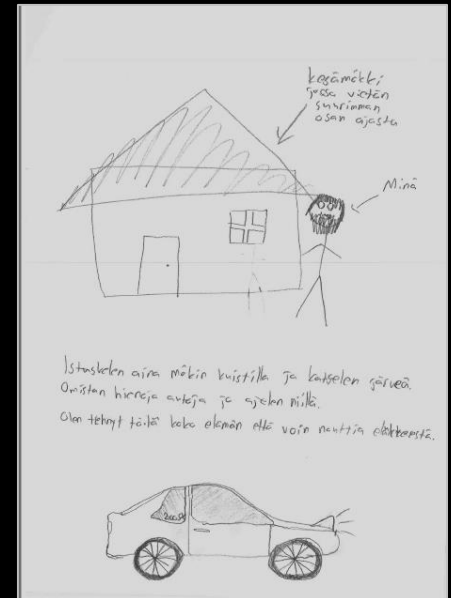 kesämökki
jossa vietän
suurimman
osan ajasta
Minä
Istuskelen aina mökin kuistilla ja katselen järveä.
Omistan hienoja autoja ja ajelen niillä.
Olen tehnyt töitä koko elämän että voin nauttia eläkkeestä.